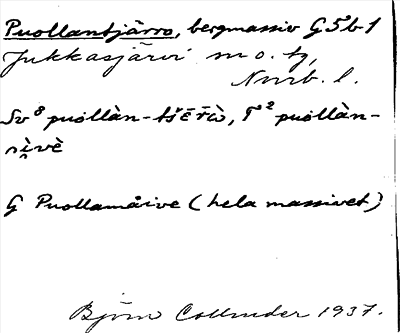 Puollantjårro, bergmassiv G5b1
Jukkasjärvi m o. tg,
Nbb. l.
Sv⁸ puollàn-tšēr̄ò, T² puollàn-
ɒi̭vè
G Puollamåive (hela massivet)
Björn Collinder 1937.